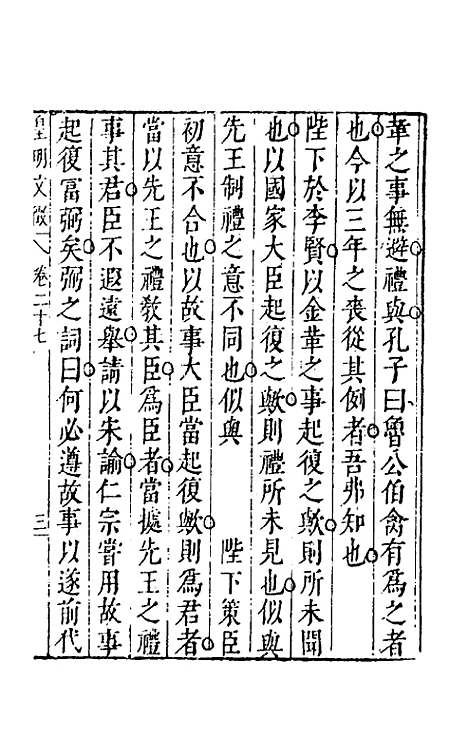 革之事無避禮與孔子曰魯公伯禽有爲之者
也今以三年之喪從其例者吾弗知也
陛下於李賢以金革之事起復之歟則所未聞
也以國家大臣起復之歟則禮所未見也似與
先王制禮之意不同也似與 陛下策臣
初意不合也以故事大臣當起復歟則爲君者
當以先王之禮敎其臣爲臣者當據先王之禮
事其君臣不遐遠舉請以宋諭仁宗嘗用故事
起復富弼矣弼之詞曰何必遵故事以遂前代
皇明文徵 卷二十七 三